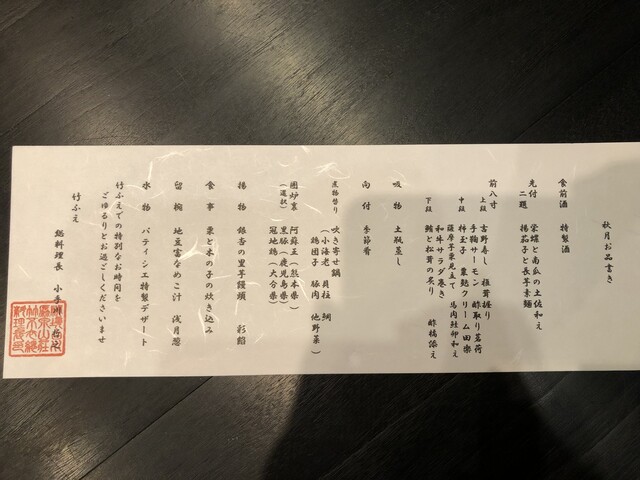 秋月お品書き
食前酒　特製酒
先付　栄螺と南瓜の土佐和え
二題　揚茄子と長芋素麺
前八寸
上段　吉野寿し　椎茸握り
手鞠サーモン　酢取り茗荷
中段　柿玉子　栗麩クリーム田楽
薩摩芋栗見立て　馬肉鮭卵和え
和牛サラダ巻き
下段　鱧と松茸の炙り　酢橘添え
吸物　土瓶蒸し
向付　季節肴
煮物替り　吹き寄せ鍋
（小海老　貝柱　鯛
鶏団子　豚肉　他野菜）
囲炉裏　阿蘇王（熊本県）
（選択）　黒豚（鹿児島県）
冠地鶏（大分県）
揚物　銀杏の里芋饅頭　彩餡
食事　栗と木の子の炊き込み
留椀　地豆富なめこ汁　浅月葱
水物　パティシエ特製デザート
竹ふえでの特別なお時間を
ごゆるりとお過ごしくださいませ
竹ふえ
総料理長　小手川